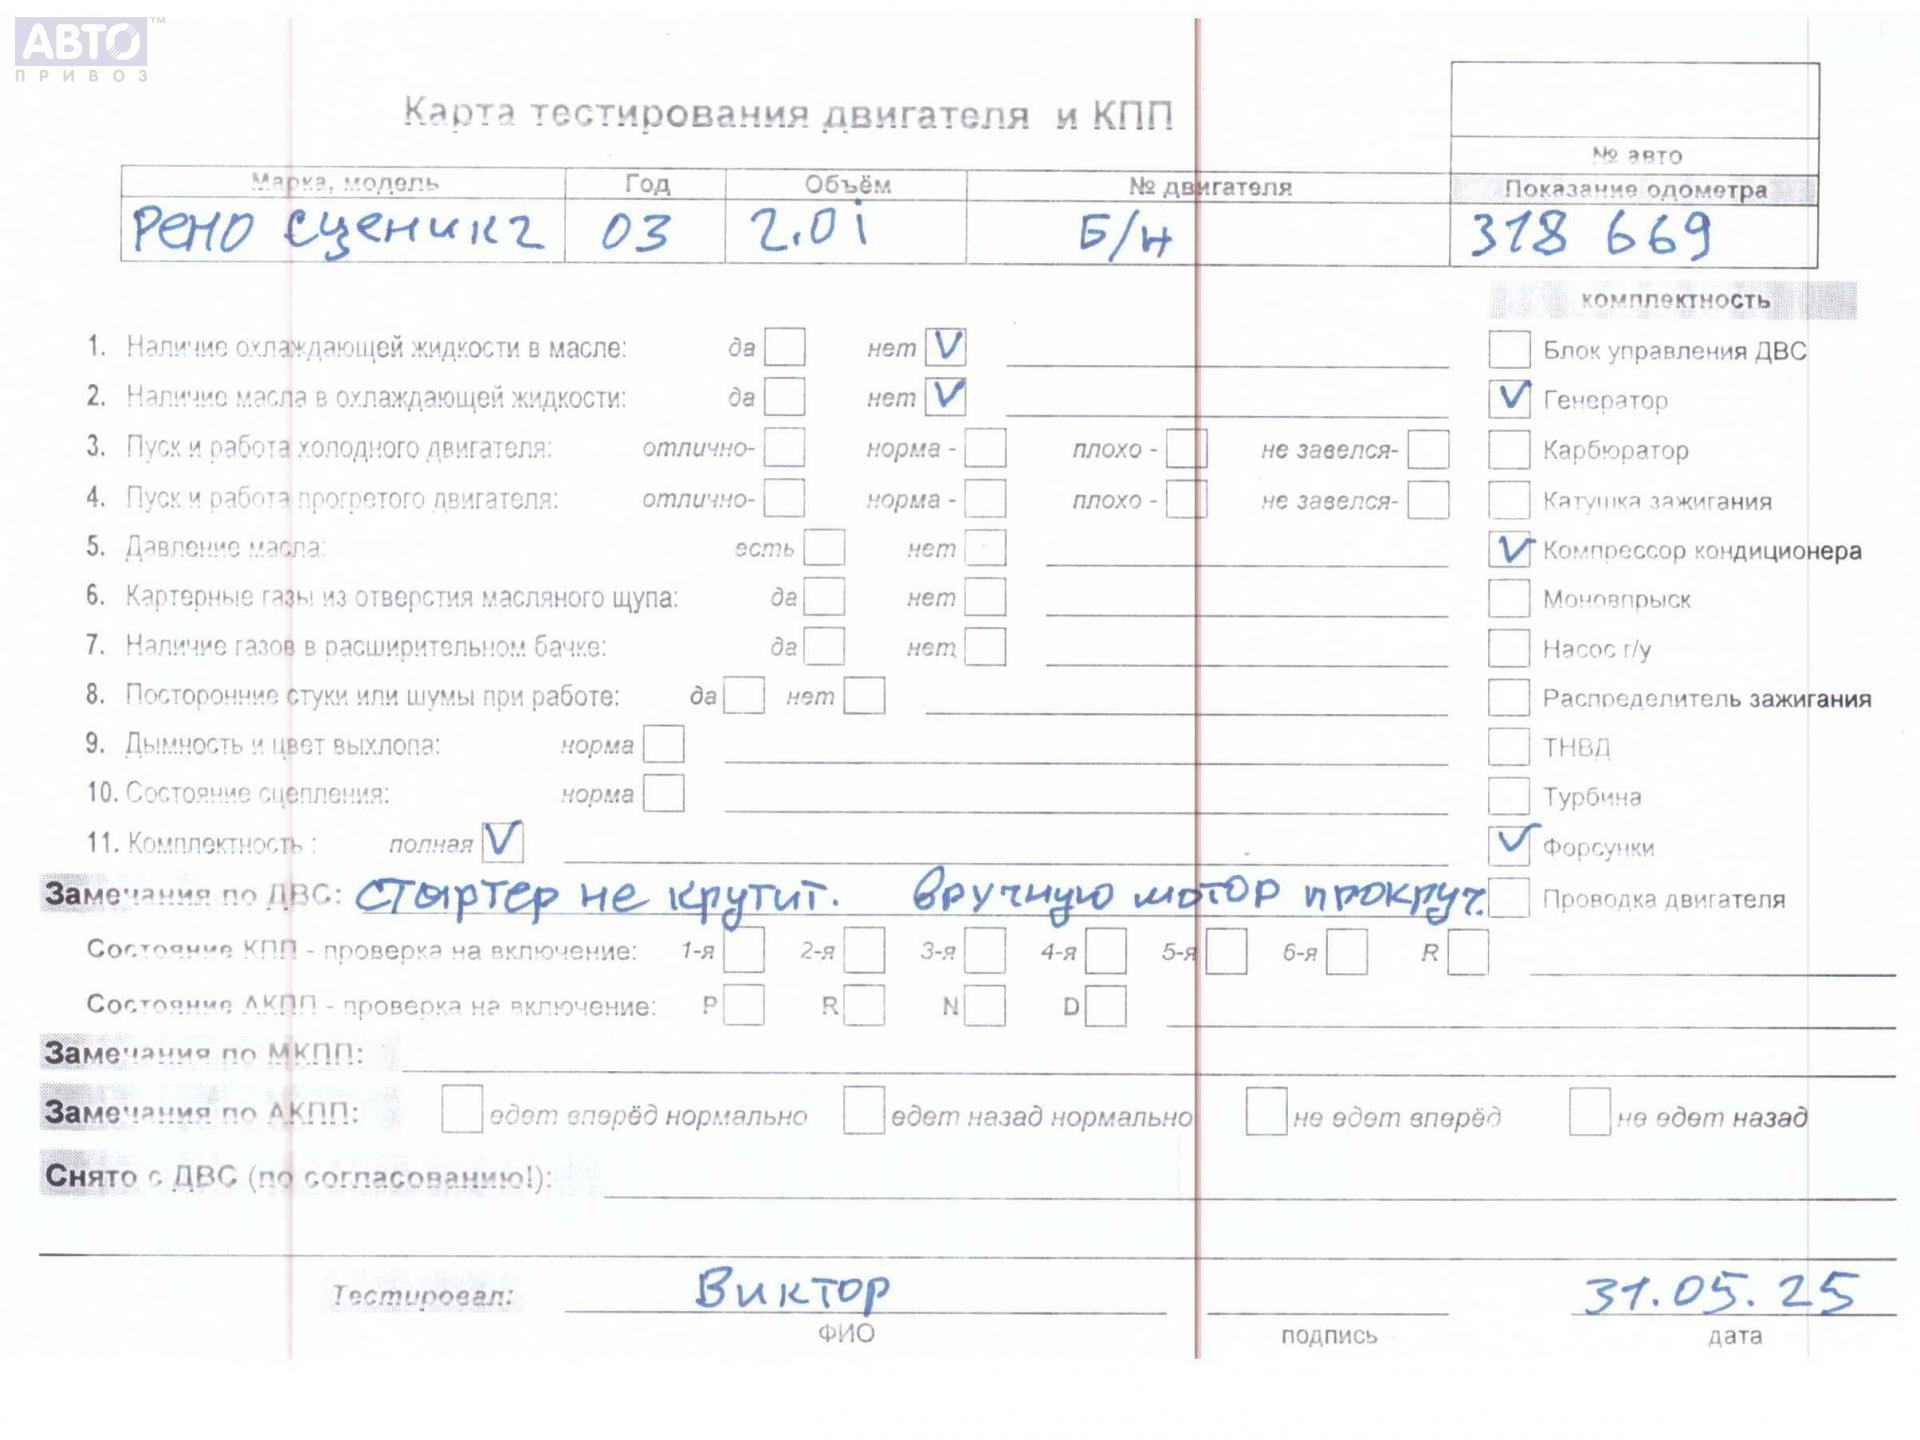 АВТО™
ПРИВОЗ
Карта тестирования двигателя и КПП
№ авто
Марка, модель Год Объём № двигателя Показание одометра
РЕНО Сценик 2 03 2.0i Б/н 318 669
комплектность
1. Наличие охлаждающей жидкости в масле: да нет V Блок управления ДВС
2. Наличие масла в охлаждающей жидкости: да нет V V Генератор
3. Пуск и работа холодного двигателя: отлично- норма - плохо - не завелся- Карбюратор
4. Пуск и работа прогретого двигателя: отлично- норма - плохо - не завелся- Катушка зажигания
5. Давление масла: есть нет V Компрессор кондиционера
6. Картерные газы из отверстия масляного щупа: да нет Моновпрыск
7. Наличие газов в расширительном бачке: да нет Насос г/у
8. Посторонние стуки или шумы при работе: да нет Распределитель зажигания
9. Дымность и цвет выхлопа: норма ТНВД
10. Состояние сцепления: норма Турбина
11. Комплектность : полная V V Форсунки
Замечания по ДВС: стыртер не крутит. вручную мотор прокруч. Проводка двигателя
Состояние КПП - проверка на включение: 1-я 2-я 3-я 4-я 5-я 6-я R
Состояние АКПП - проверка на включение: P R N D
Замечания по МКПП:
Замечания по АКПП: едет вперёд нормально едет назад нормально не едет вперёд не едет назад
Снято с ДВС (по согласованию!):
Тестировал: Виктор 31.05.25
ФИО подпись дата